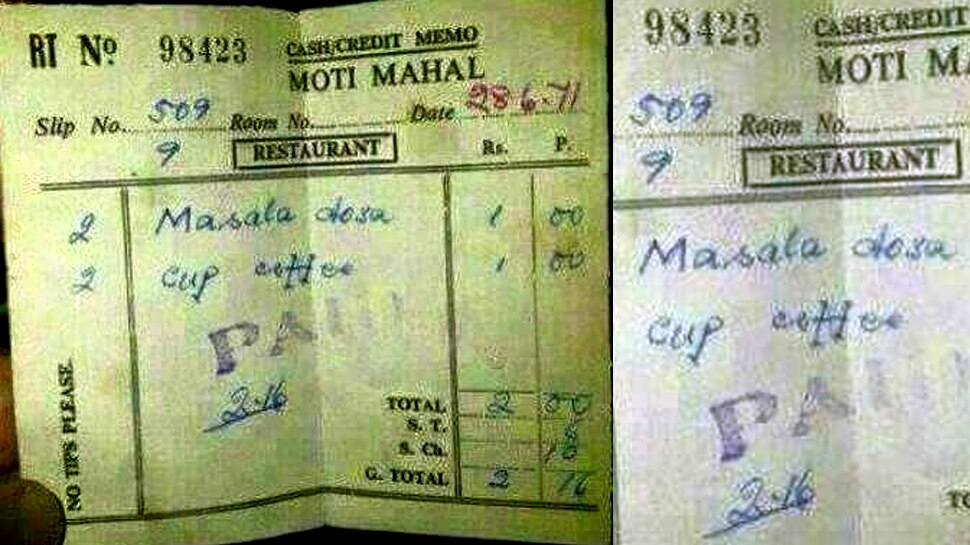 RT Nº 98423 CASH/CREDIT MEMO
MOTI MAHAL
Slip No. 509 Room No. Date 28 6.71
9 RESTAURANT Rs. P.
2 Masala dosa 1 00
2 cup coffee 1 00
PAID
2.16
NO TIPS PLEASE
TOTAL 2 00
S. T.
S. Ch. 16
G. TOTAL 2 16
98423 CASH/CREDIT
MOTI MA
509 Room No.
9 RESTAURANT
Masala dosa
cup coffee
PA
2.16
TO